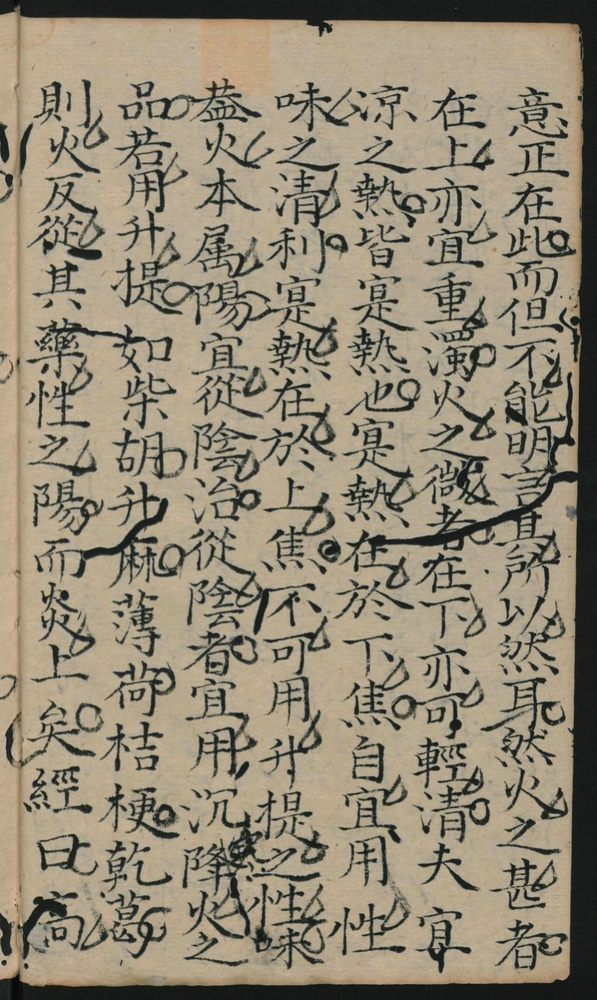 意正在此而但不能明言其所以然耳然火之甚者
在上亦宜重濁火之微者在下亦可輕清夫宜
凉之熱皆寔熱也寔熱在於下焦自宜用性
味之清利寔熱在於上焦不可用升提之性味
葢火本属陽宜從陰治從陰者宜用沉降火之
品若用升提如柴胡升麻薄荷桔梗乾葛
則火反從其藥性之陽而炎上矣經曰高